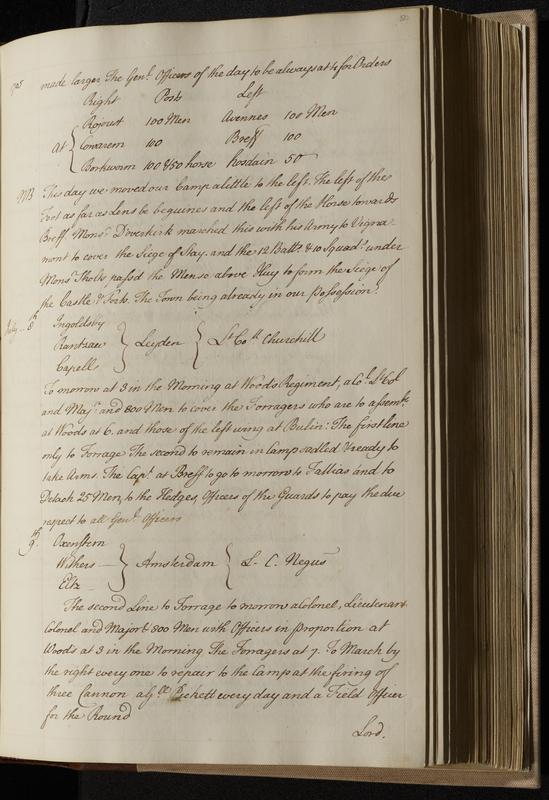 1705
made larger The Gen:l Officers of the day to be always at 4 for Orders
Right Posts Left
Rojoust 100 Men Avennes 100 Men
At Corvarem 100 Breff 100
Borkworm 100 & 50 horse hosdain 50
NB This day we moved our Camp alittle to the left. The left of the
Foot as far as Lens be beguines and the left of the Horse towards
Breff. Mons:r Dverkirk marched this with his Army to Vigna:
mont to cover the Siege of Huy. and the 12 Batt:s & 10 Squad:s under
Mons:r Tholts passd the Mense above Huy to form the Siege of
the Castle & Forts. The Town being already in our Possession:
July .. 8th Ingoldsby
Rantzaw Leyden Lt Coll Churchill
Capells
To morrow at 3 in the Morning at Woods Regiment, a Col: Lt Col
and Maj:r and 800 Men to cover the Forragers who are to assemble
at Woods at 6. and those of the left wing at Bulin: The first line
only to Forrage The second to remain in Camp sadled & ready to
take Arms. The Cap:t at Breff to go to morrow to Tallias and to
Detach 25 Men, to the Hedges, Officers of the Guards to pay the due
respect to all Gen:l Officers
9th. Oxenstern
Withers Amsterdam L. C. Negus
Eltz
The second Line to Forrage to morrow a Colonel, Lieutenant
Colonel and Major & 800 Men with Officers in proportion at
Woods at 3 in the Morning The Forragers at 7. To March by
the right every one to repair to the Camp at the firing of
three Cannon a Pickett every day and a Field Officer
for the Round
Lord.